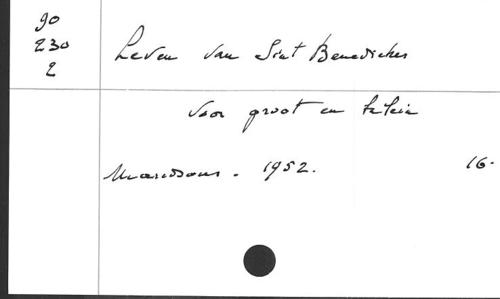 90
230
2
Leven van Sint Benedictus
voor groot en klein
Maredsous. 1952. 16.